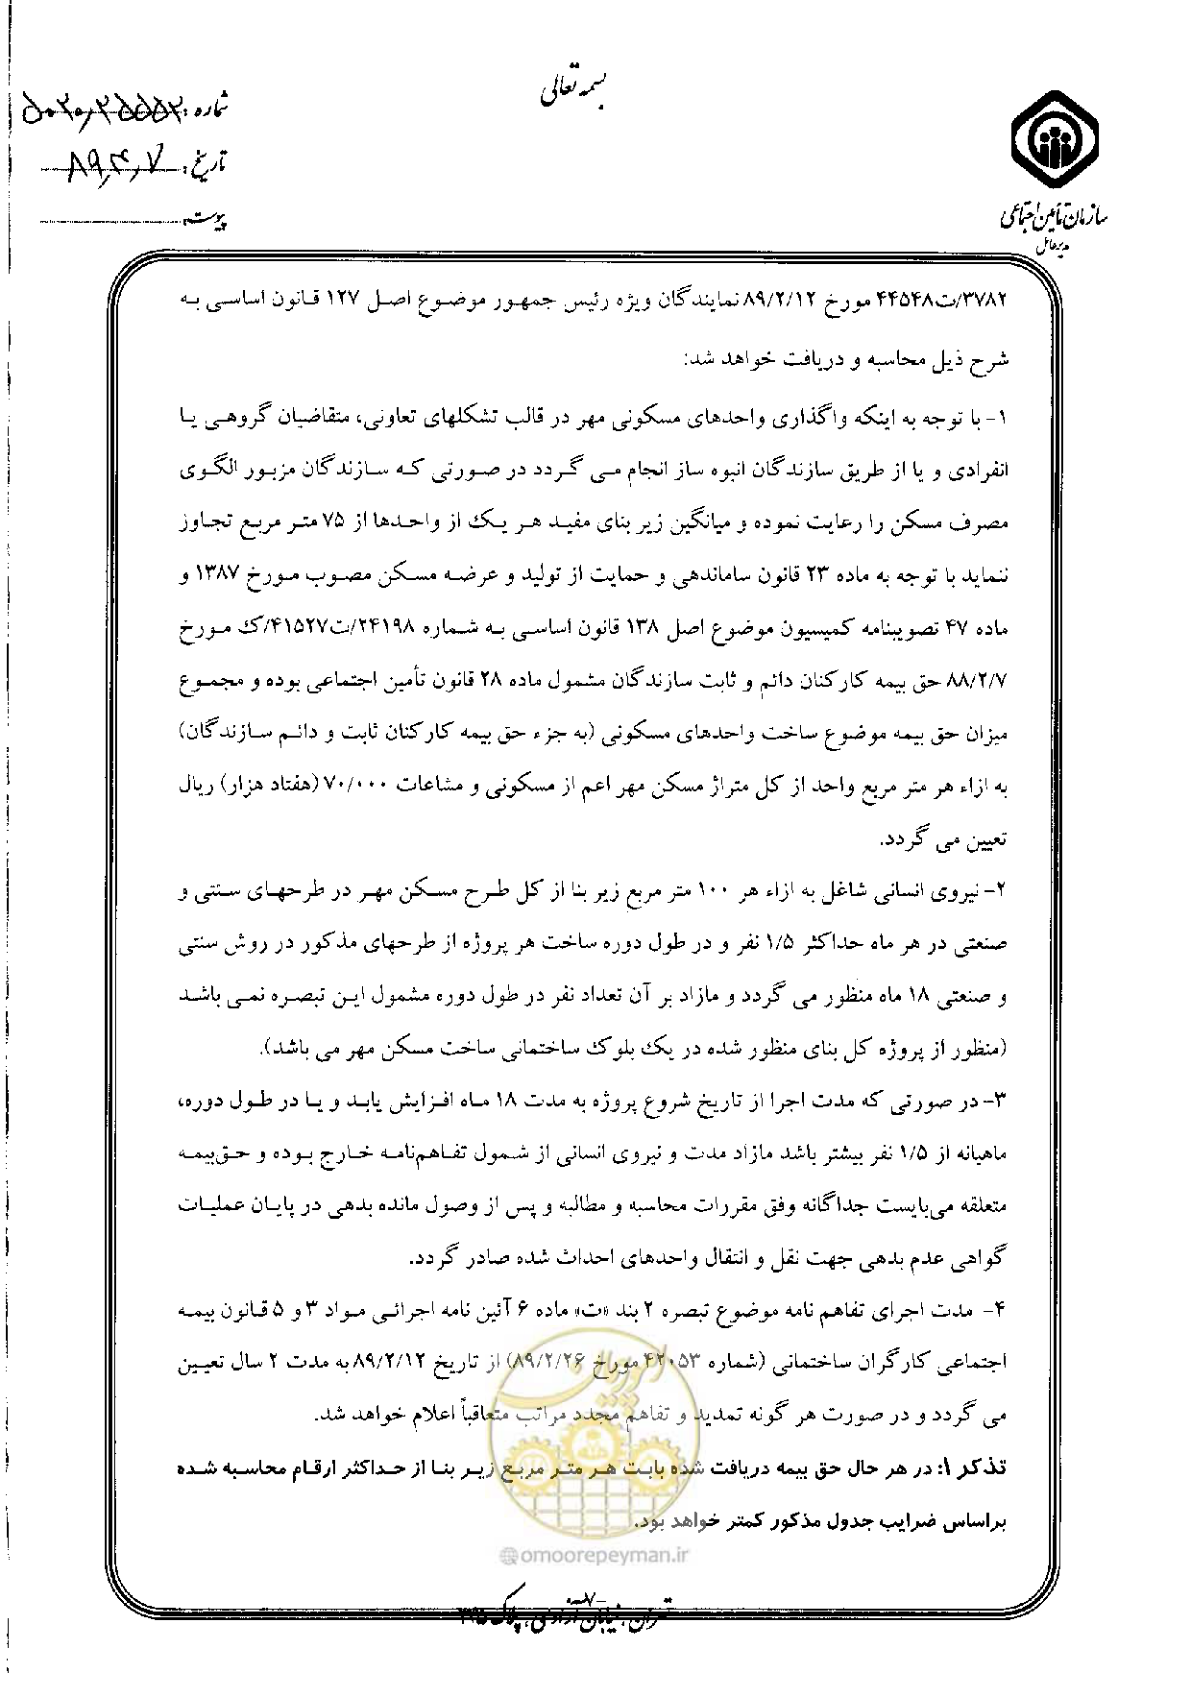 بسمه تعالی
شماره: ۵۰۲۰/۲۵۵۵۲
تاریخ: ۸۹/۴/۷
پیوست
سازمان تأمین اجتماعی
مدیرعامل
۳۷۸۲/ت۴۴۵۴۸ مورخ ۸۹/۲/۱۲ نمایندگان ویژه رئیس جمهور موضوع اصل ۱۲۷ قانون اساسی به
شرح ذیل محاسبه و دریافت خواهد شد:
۱- با توجه به اینکه واگذاری واحدهای مسکونی مهر در قالب تشکلهای تعاونی، متقاضیان گروهی یا
انفرادی و یا از طریق سازندگان انبوه ساز انجام می گردد در صورتی که سازندگان مزبور الگوی
مصرف مسکن را رعایت نموده و میانگین زیر بنای مفید هر یک از واحدها از ۷۵ متر مربع تجاوز
ننماید با توجه به ماده ۲۳ قانون ساماندهی و حمایت از تولید و عرضه مسکن مصوب مورخ ۱۳۸۷ و
ماده ۴۷ تصویبنامه کمیسیون موضوع اصل ۱۳۸ قانون اساسی به شماره ۲۴۱۹۸/ت۴۱۵۲۷/ک مورخ
۸۸/۲/۷ حق بیمه کارکنان دائم و ثابت سازندگان مشمول ماده ۲۸ قانون تأمین اجتماعی بوده و مجموع
میزان حق بیمه موضوع ساخت واحدهای مسکونی (به جزء حق بیمه کارکنان ثابت و دائم سازندگان)
به ازاء هر متر مربع واحد از کل متراژ مسکن مهر اعم از مسکونی و مشاعات ۷۰/۰۰۰ (هفتاد هزار) ریال
تعیین می گردد.
۲- نیروی انسانی شاغل به ازاء هر ۱۰۰ متر مربع زیر بنا از کل طرح مسکن مهر در طرحهای سنتی و
صنعتی در هر ماه حداکثر ۱/۵ نفر و در طول دوره ساخت هر پروژه از طرحهای مذکور در روش سنتی
و صنعتی ۱۸ ماه منظور می گردد و مازاد بر آن تعداد نفر در طول دوره مشمول این تبصره نمی باشد
(منظور از پروژه کل بنای منظور شده در یک بلوک ساختمانی ساخت مسکن مهر می باشد).
۳- در صورتی که مدت اجرا از تاریخ شروع پروژه به مدت ۱۸ ماه افزایش یابد و یا در طول دوره،
ماهیانه از ۱/۵ نفر بیشتر باشد مازاد مدت و نیروی انسانی از شمول تفاهم‌نامه خارج بوده و حق‌بیمه
متعلقه می‌بایست جداگانه وفق مقررات محاسبه و مطالبه و پس از وصول مانده بدهی در پایان عملیات
گواهی عدم بدهی جهت نقل و انتقال واحدهای احداث شده صادر گردد.
۴- مدت اجرای تفاهم نامه موضوع تبصره ۲ بند «ت» ماده ۶ آئین نامه اجرائی مواد ۳ و ۵ قانون بیمه
اجتماعی کارگران ساختمانی (شماره ۴۲۰۵۳ مورخ ۸۹/۲/۲۶) از تاریخ ۸۹/۲/۱۲ به مدت ۲ سال تعیین
می گردد و در صورت هر گونه تمدید و تفاهم مجدد مراتب متعاقباً اعلام خواهد شد.
تذکر ۱: در هر حال حق بیمه دریافت شده بابت هر متر مربع زیر بنا از حداکثر ارقام محاسبه شده
براساس ضرایب جدول مذکور کمتر خواهد بود.
امور پیمان
@omoorepeyman.ir
-۷-
تهران، خیابان آزادی، پلاک